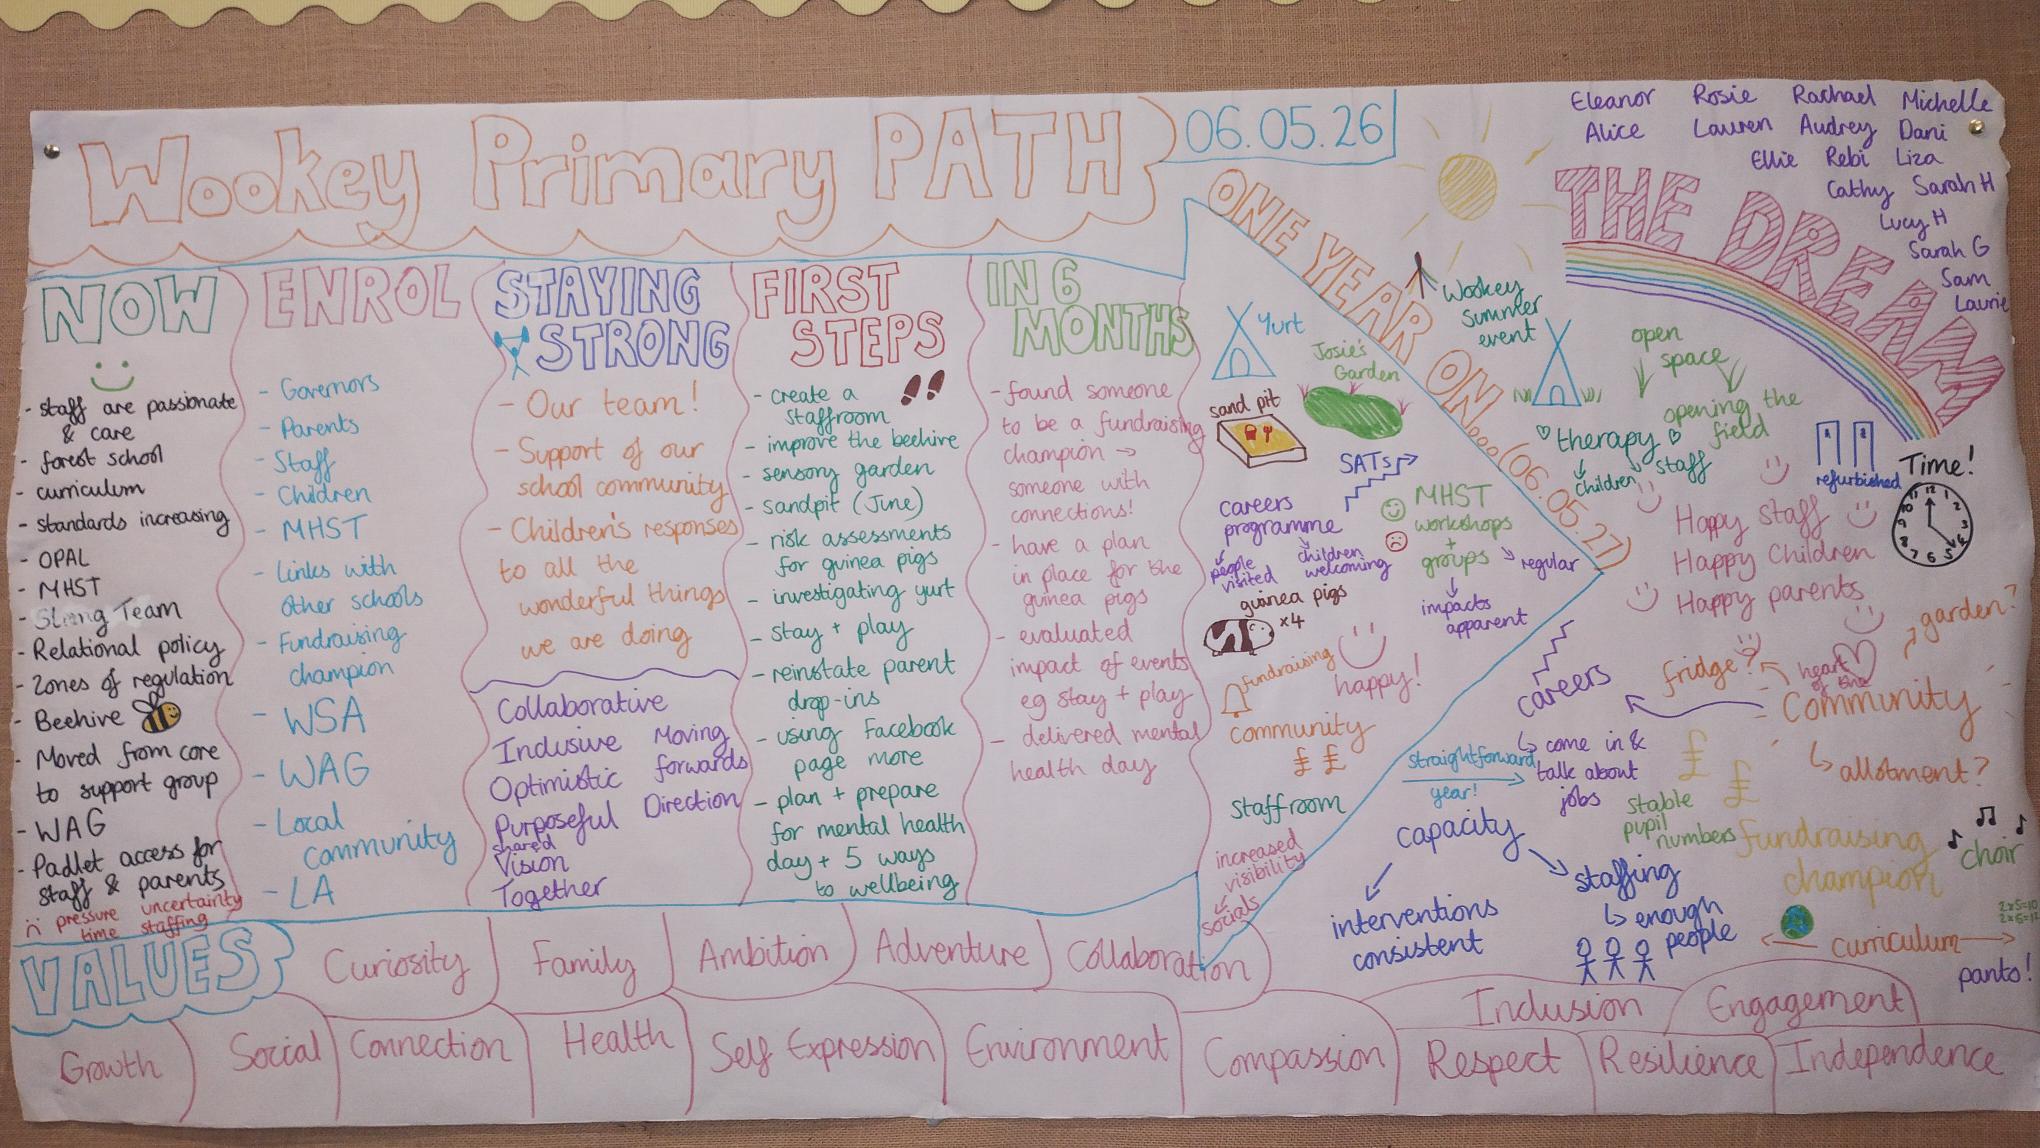 Wookey Primary PATH
06.05.26
Eleanor Rosie Rachael Michelle
Alice Lauren Audrey Dani
Ellie Rebi Liza
Cathy Sarah H
Lucy H
Sarah G
Sam
Laurie
THE DREAM
NOW
- staff are passionate
& care
- forest school
- curriculum
- standards increasing
- OPAL
- MHST
- Strong Team
- Relational policy
- Zones of regulation
- Beehive
- Moved from core
to support group
- WAG
- Padlet access for
staff & parents
pressure uncertainty
time staffing
ENROL
- Governors
- Parents
- Staff
- Children
- MHST
- Links with
other schools
- Fundraising
champion
- WSA
- WAG
- Local
community
- LA
STAYING
STRONG
- Our team!
- Support of our
school community
- Children's responses
to all the
wonderful things
we are doing
Collaborative
Inclusive Moving
Optimistic forwards
Purposeful Direction
shared
Vision
Together
FIRST
STEPS
- create a
staffroom
- improve the beehive
- sensory garden
- sandpit (June)
- risk assessments
for guinea pigs
- investigating yurt
- stay + play
- reinstate parent
drop-ins
- using Facebook
page more
- plan + prepare
for mental health
day + 5 ways
to wellbeing
IN 6
MONTHS
- found someone
to be a fundraising
champion →
someone with
connections!
- have a plan
in place for the
guinea pigs
- evaluated
impact of events
eg stay + play
- delivered mental
health day
ONE YEAR ON... (06.05.27)
Yurt
Josie's
Garden
sand pit
SATs
careers
programme
people
visited
children
welcoming
MHST
workshops
+
groups
regular
impacts
apparent
guinea pigs
x4
fundraising
happy!
community
£ £
staffroom
increased
visibility
socials
Wookey
Summer
event
open
space
opening the
field
therapy
children
staff
refurbished
Time!
11 12 1
10 2
9 3
8 4
7 6 5
Happy Staff
Happy Children
Happy parents
garden?
fridge?
heart
of the
Community
careers
come in &
talk about
jobs
allotment?
straightforward
year!
£
£
stable
pupil
numbers
fundraising
champion
choir
capacity
staffing
enough
people
interventions
consistent
curriculum
2x5=10
panto!
VALUES
Curiosity
Family
Ambition
Adventure
Collaboration
Inclusion
Engagement
Growth
Social
Connection
Health
Self Expression
Environment
Compassion
Respect
Resilience
Independence